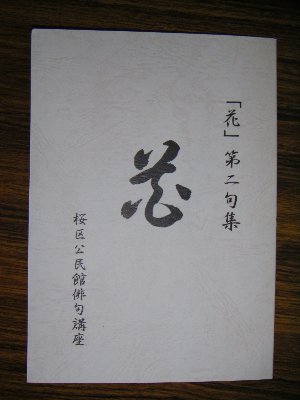 「花」第二句集
花
桜区公民館俳句講座